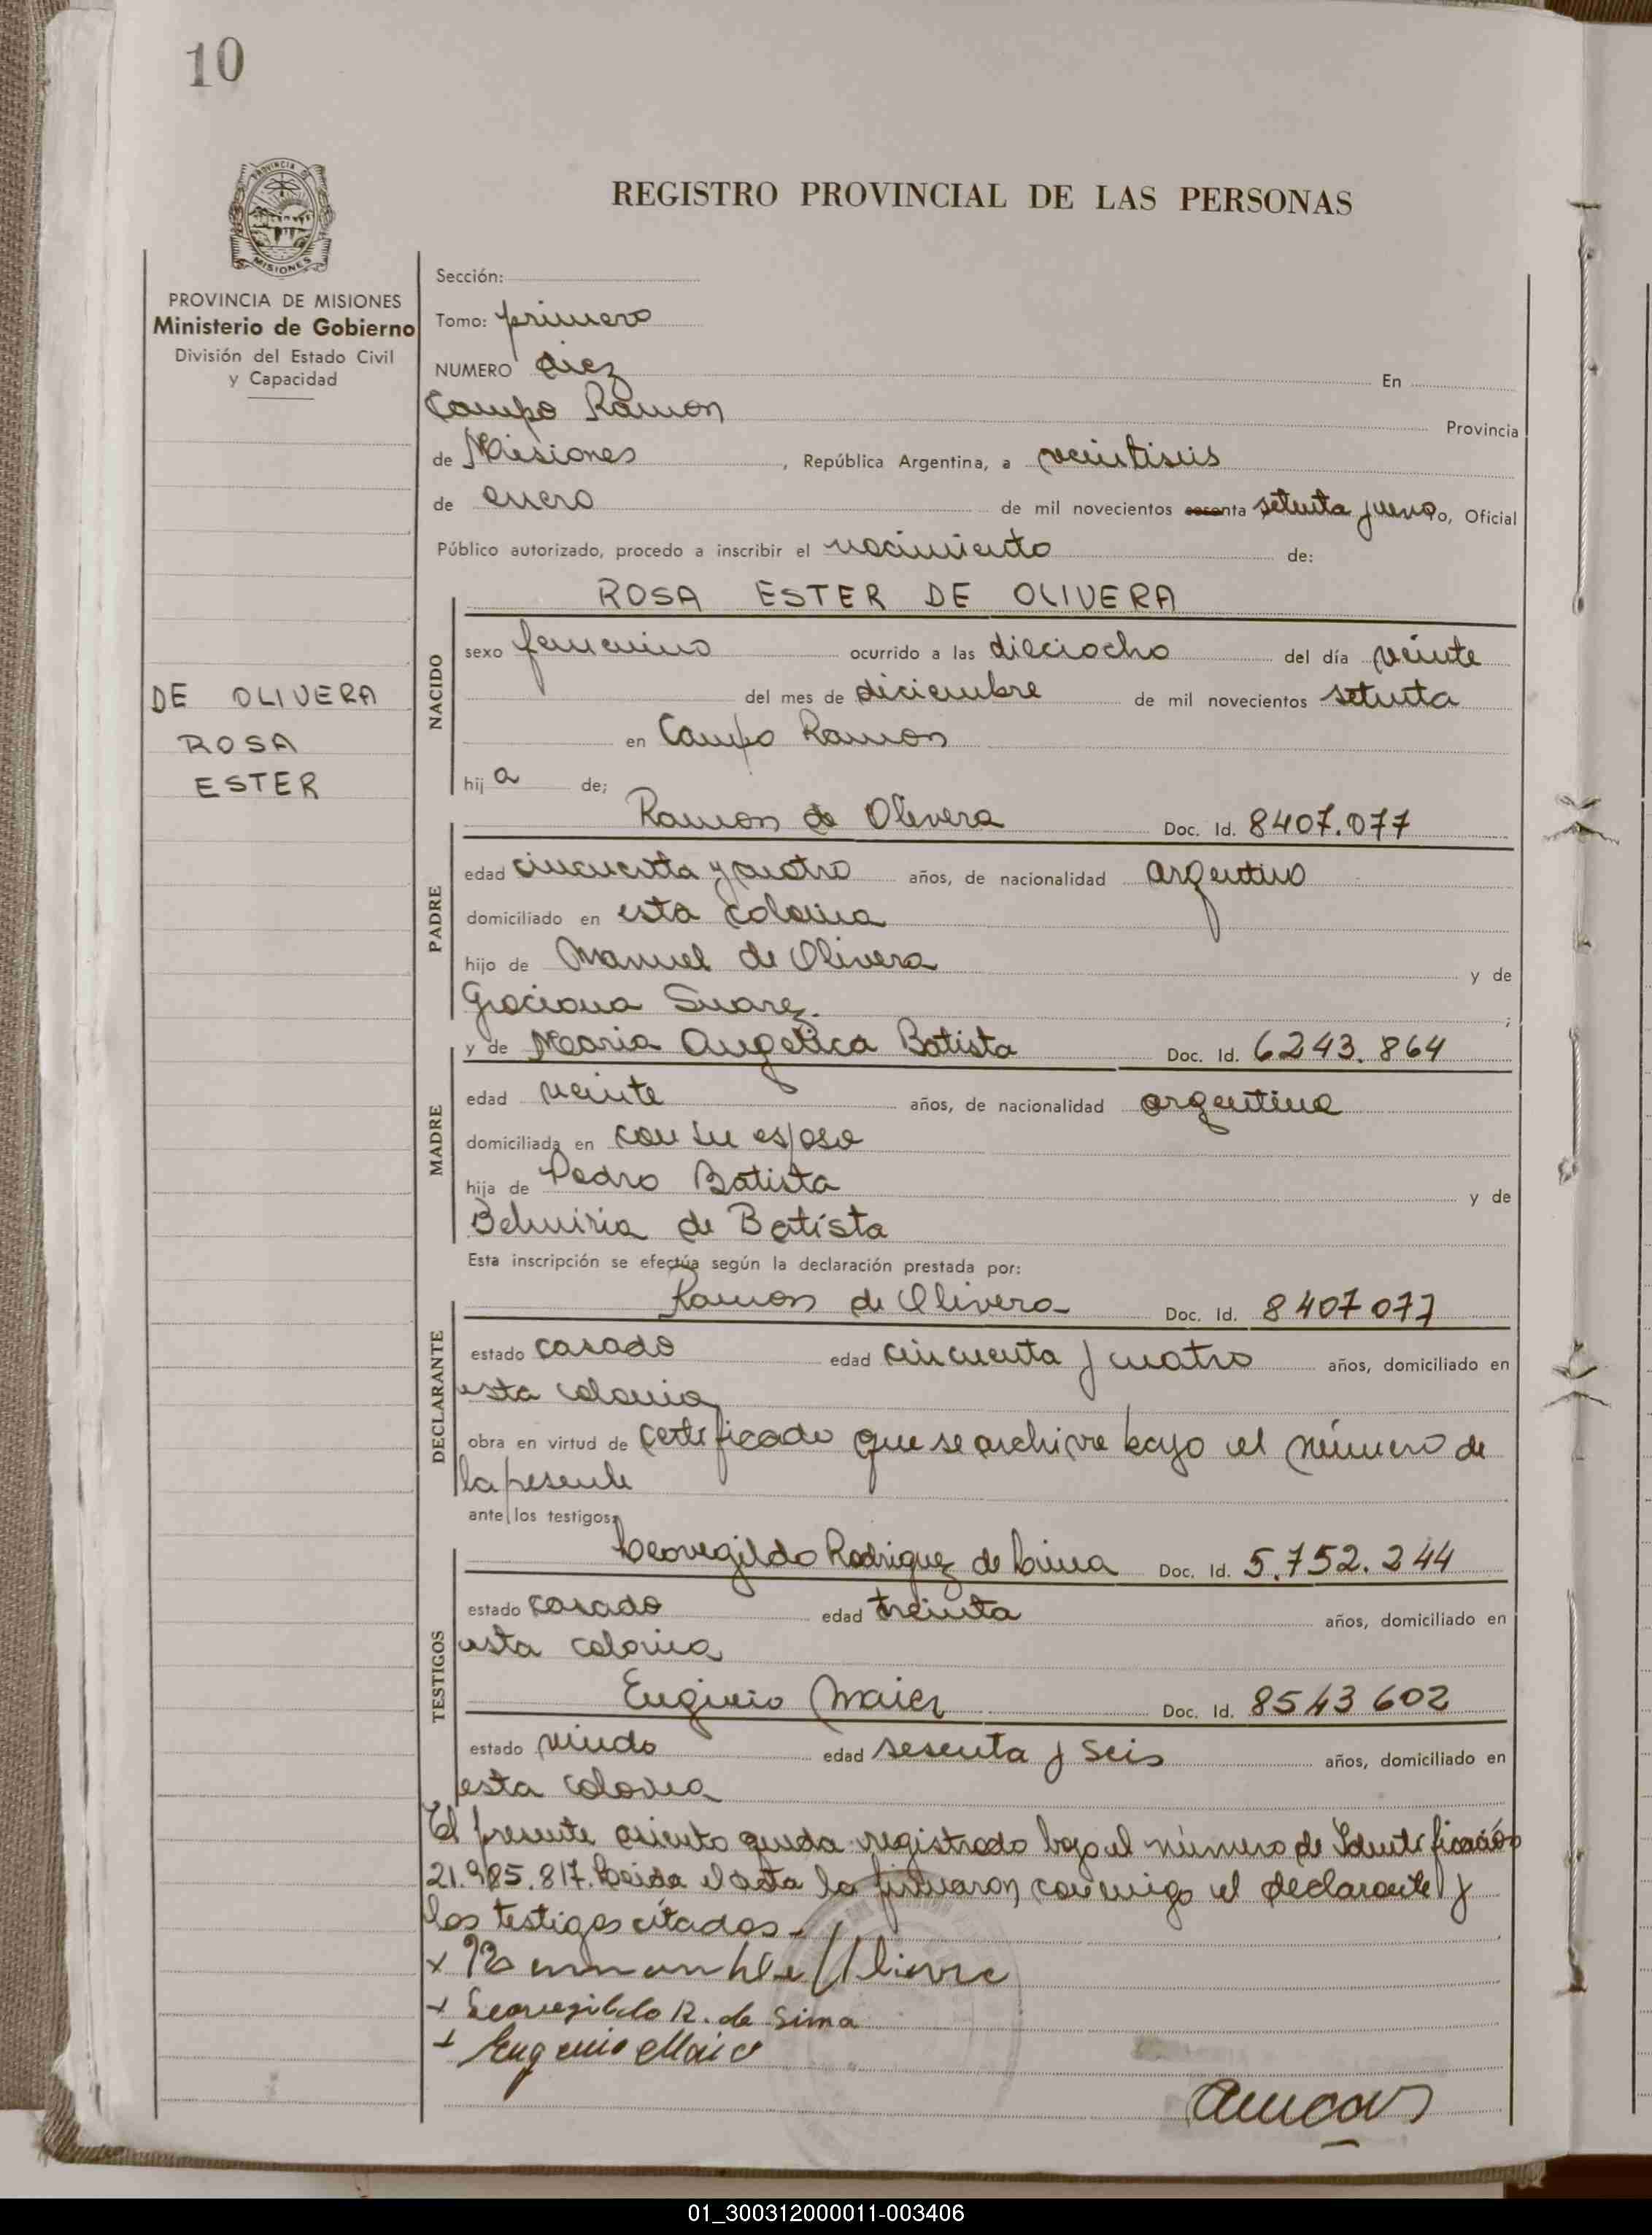 10
REGISTRO PROVINCIAL DE LAS PERSONAS
PROVINCIA DE MISIONES
PROVINCIA DE MISIONES
Ministerio de Gobierno
División del Estado Civil
y Capacidad
DE OLIVERA
ROSA
ESTER
Sección:
Tomo: primero
NUMERO diez En
Campo Ramon Provincia
de Misiones, República Argentina, a veintiseis
de enero de mil novecientos setenta y uno, Oficial
Público autorizado, procedo a inscribir el nacimiento de:
ROSA ESTER DE OLIVERA
NACIDO
sexo femenino ocurrido a las dieciocho del día veinte
del mes de diciembre de mil novecientos setenta
en Campo Ramon
hij a de;
Ramon de Olivera Doc. Id. 8407.077
PADRE
edad cincuenta y cuatro años, de nacionalidad argentino
domiciliado en esta colonia
hijo de Manuel de Olivera y de
Graciana Suarez.;
y de Maria Angelica Batista Doc. Id. 6243.864
MADRE
edad veinte años, de nacionalidad argentina
domiciliada en con su esposo
hija de Pedro Batista y de
de Batista
Esta inscripción se efectúa según la declaración prestada por:
Ramon de Olivera Doc. Id. 8407077
DECLARANTE
estado casado edad cincuenta y cuatro años, domiciliado en
esta colonia
obra en virtud de certificado que se archiva bajo el número de
la presente
ante los testigos:
Leovegildo Rodriguez de Lima Doc. Id. 5.752.244
TESTIGOS
estado casado edad treinta años, domiciliado en
esta colonia
Eugenio Maier Doc. Id. 8543602
estado viudo edad sesenta y seis años, domiciliado en
esta colonia
El presente asiento queda registrado bajo el número de Identificación
21.985.817. Leida el acta la firmaron conmigo el declarante y
los testigos citados.-
x Olivera
+ Leovegildo R. de Lima
+ Eugenio Maier
01_300312000011-003406